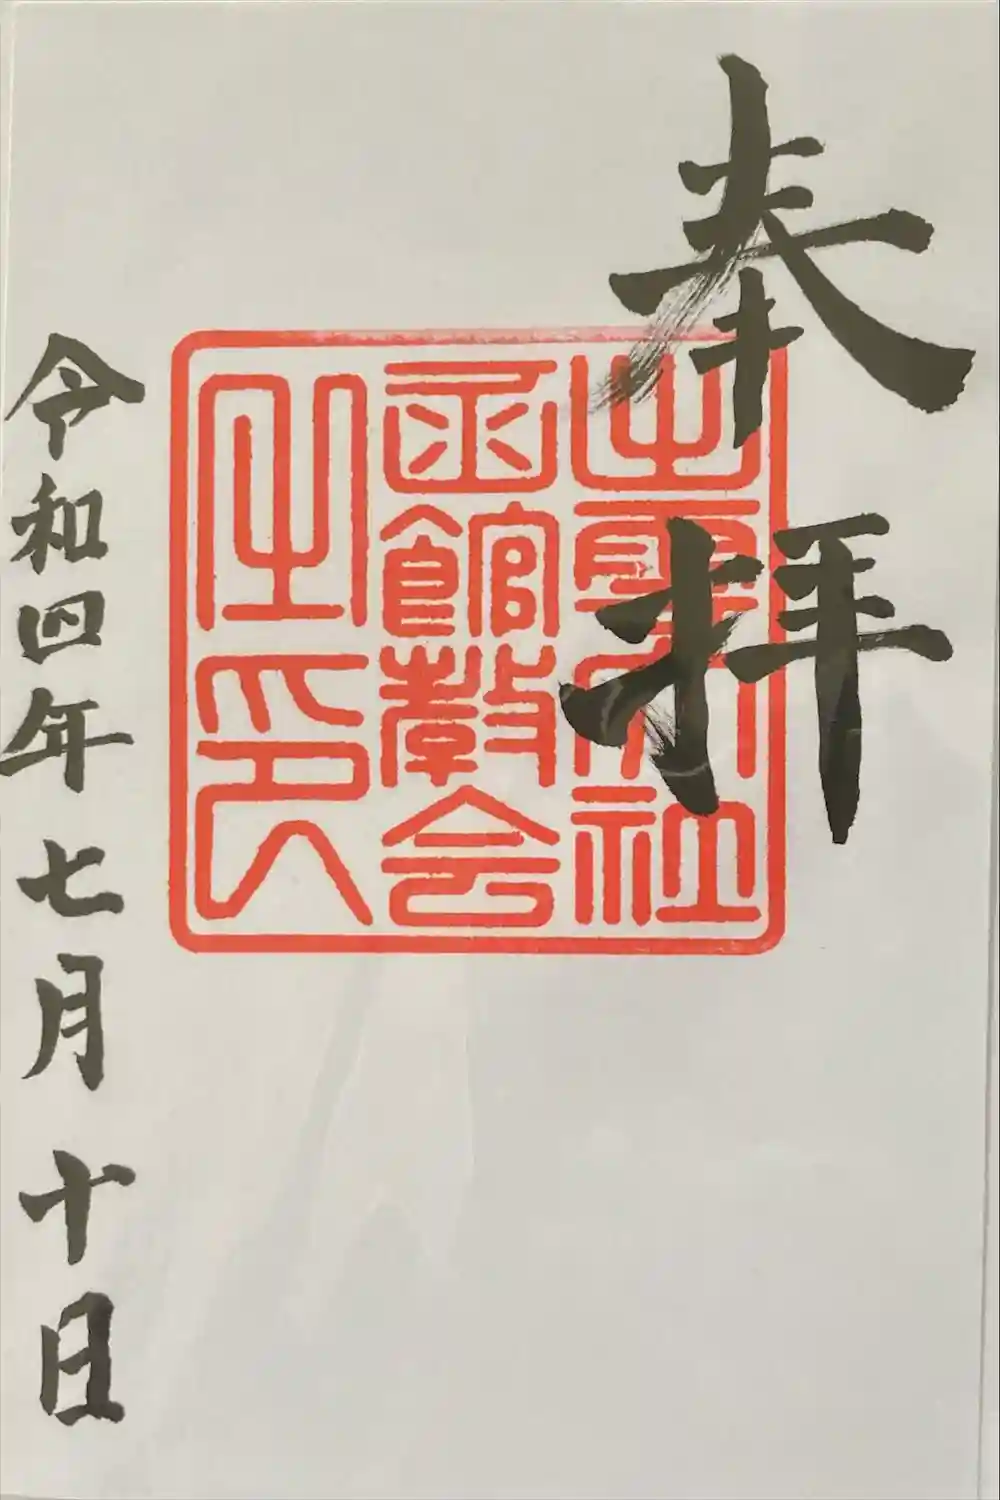 奉拝
出雲大社
函館教会
之印
令和四年七月十日